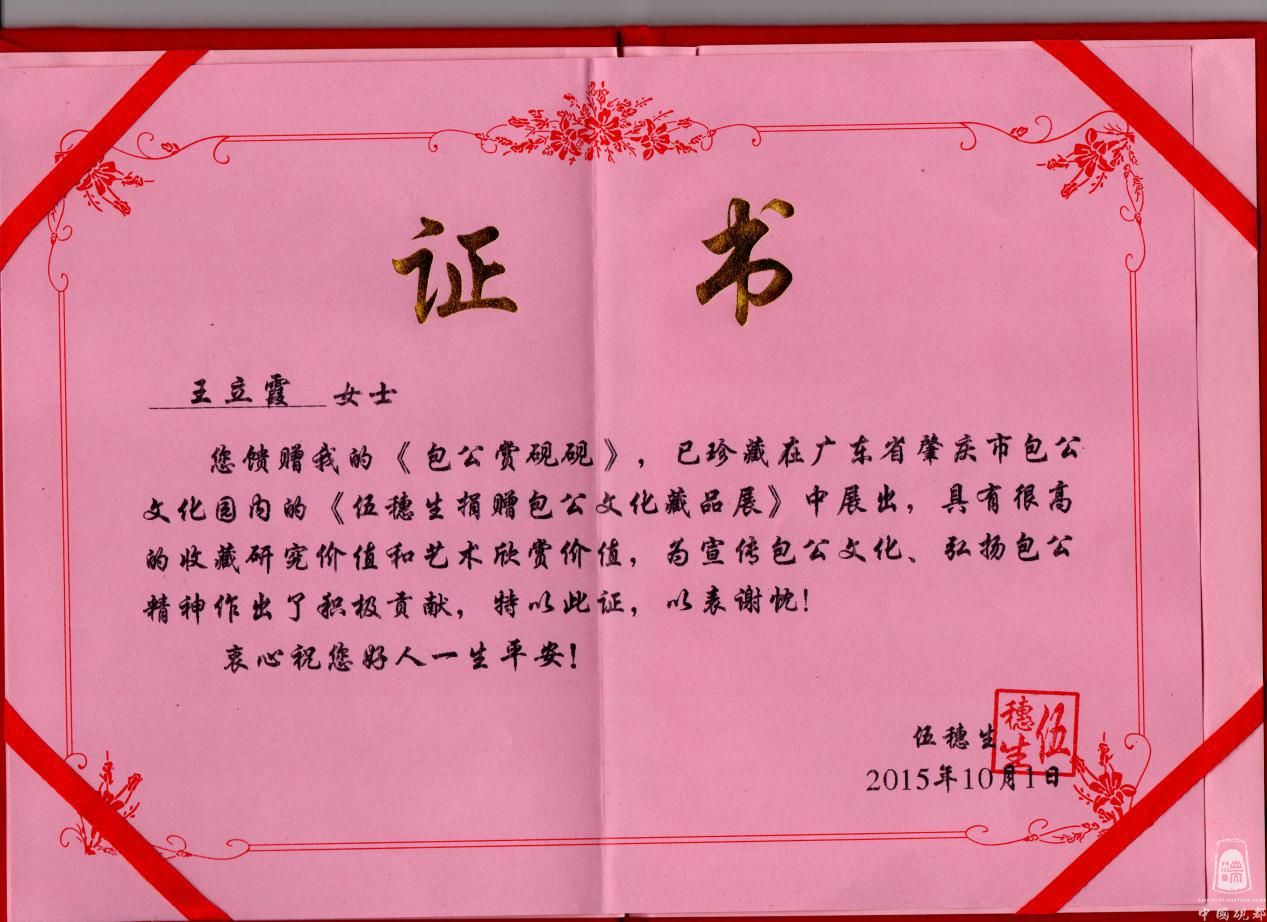 证 书
王立霞 女士
您馈赠我的《包公赏砚砚》,已珍藏在广东省肇庆市包公
文化园内的《伍穗生捐赠包公文化藏品展》中展出,具有很高
的收藏研究价值和艺术欣赏价值,为宣传包公文化、弘扬包公
精神作出了积极贡献,特以此证,以表谢忱!
衷心祝您好人一生平安!
伍穗生
伍穗生
2015年10月1日
中國硯都